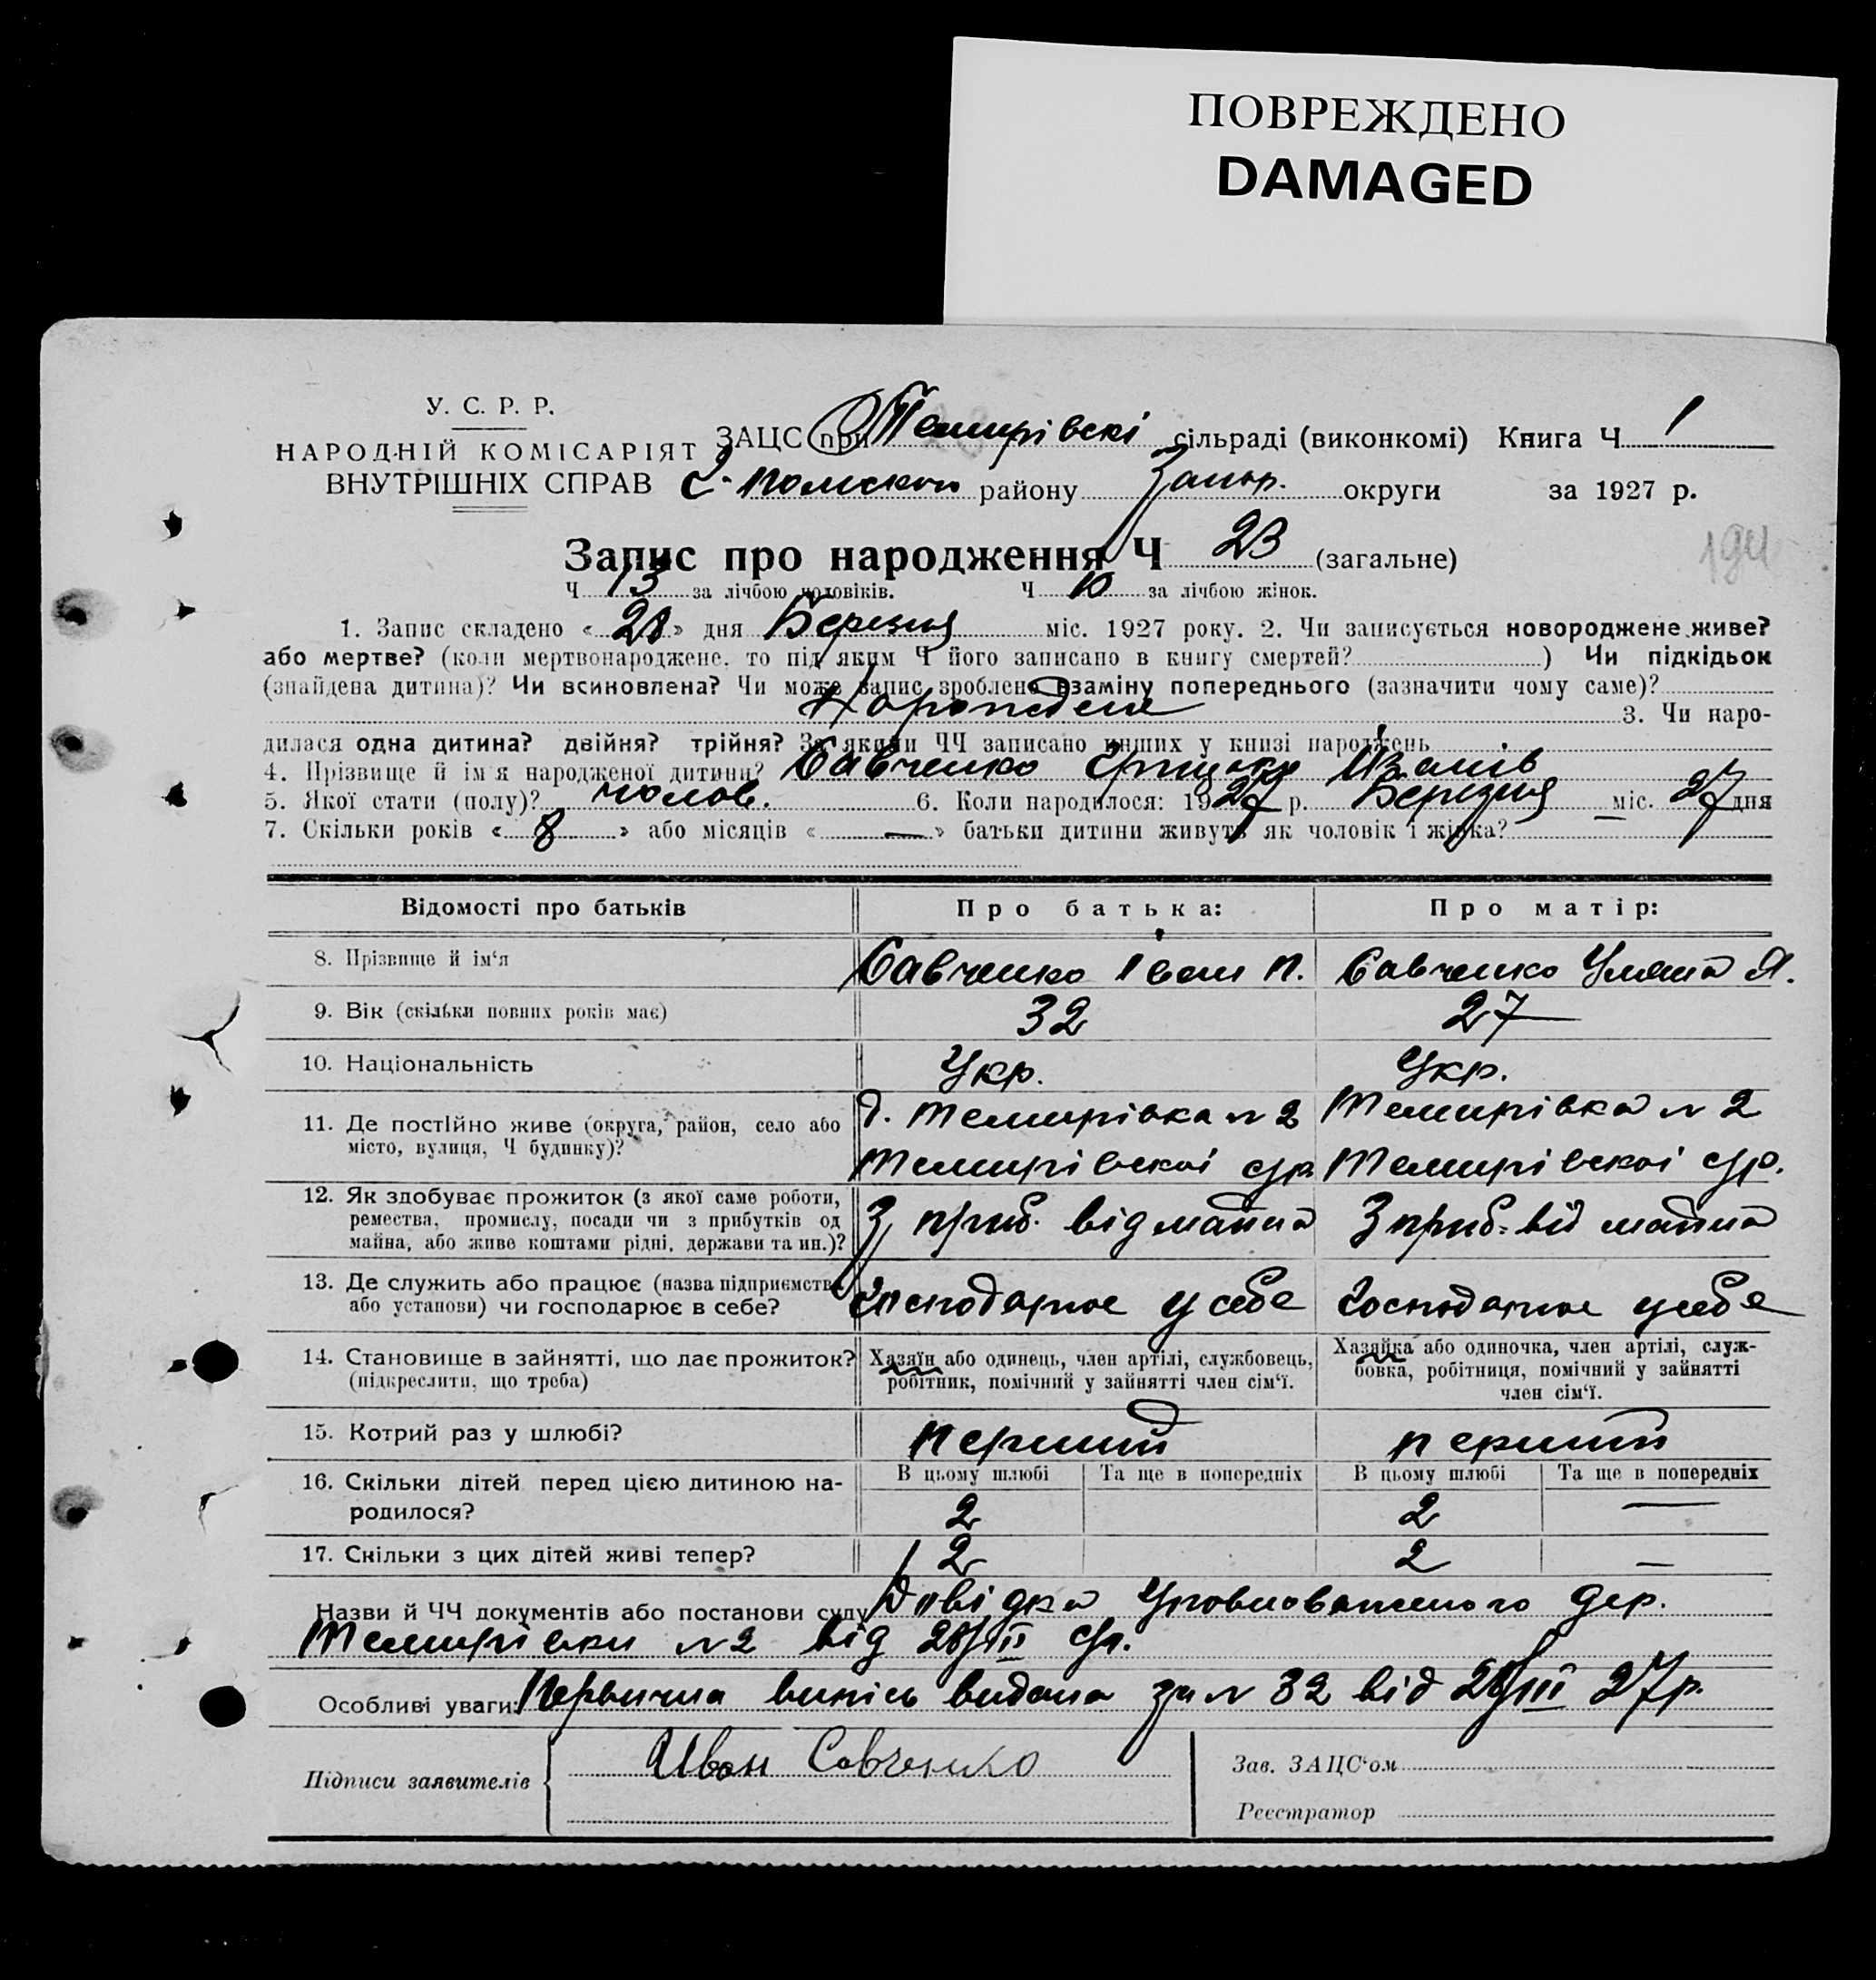 ПОВРЕЖДЕНО
DAMAGED
У. С. Р. Р.
НАРОДНІЙ КОМІСАРІЯТ
ВНУТРІШНІХ СПРАВ
ЗАЦС при Темирівскі сільраді (виконкомі) Книга Ч 1
району Запор. округи за 1927 р.
194
Запис про народження Ч 23 (загальне)
Ч 13 за лічбою чоловіків. Ч 10 за лічбою жінок.
1. Запис складено «28» дня Березня міс. 1927 року. 2. Чи записується новороджене живе?
або мертве? (коли мертвонароджене, то під яким Ч його записано в книгу смертей? ) Чи підкідьок
(знайдена дитина)? Чи всиновлена? Чи може запис зроблено взаміну попереднього (зазначити чому саме)?
3. Чи наро-
дилася одна дитина? двійня? трійня? За якими ЧЧ записано инших у книзі народжень
4. Прізвище й ім'я народженої дитини? Савченко Грицько Іванів
5. Якої стати (полу)? чолов. 6. Коли народилося: 1927 р. Березня міс. 27 дня
7. Скільки років «8» або місяців «—» батьки дитини живуть як чоловік і жінка?
Відомості про батьків Про батька: Про матір:
8. Прізвище й ім'я Савченко Іван П. Савченко Уляна Я.
9. Вік (скільки повних років має) 32 27
10. Національність Укр. Укр.
11. Де постійно живе (округа, район, село або д. Темирівка №2 Темирівка №2
місто, вулиця, Ч будинку)? Темирівскоі с/р. Темирівскоі с/р.
12. Як здобуває прожиток (з якої саме роботи,
ремества, промислу, посади чи з прибутків од З приб. від майна З приб. від майна
майна, або живе коштами рідні, держави та ин.)?
13. Де служить або працює (назва підприємства
або установи) чи господарює в себе? Господарює у себе Господарює у себе
14. Становище в зайнятті, що дає прожиток? Хазяїн або одинець, член артілі, службовець, Хазяйка або одиночка, член артілі, служ-
(підкреслити, що треба) робітник, помічний у зайнятті член сім'ї. бовка, робітниця, помічний у зайнятті
член сім'ї.
15. Котрий раз у шлюбі? перший перший
16. Скільки дітей перед цією дитиною на- В цьому шлюбі Та ще в попередніх В цьому шлюбі Та ще в попередніх
родилося? 2 2 —
17. Скільки з цих дітей живі тепер? 2 2 —
Назви й ЧЧ документів або постанови суду Довідка Уповноваженого дер.
Темирівки №2 від 28/III с/р.
Особливі уваги: Первична випісь видана за № 32 від 28/III 27р.
Підписи заявителів Иван Савченко
Зав. ЗАЦС'ом
Реєстратор